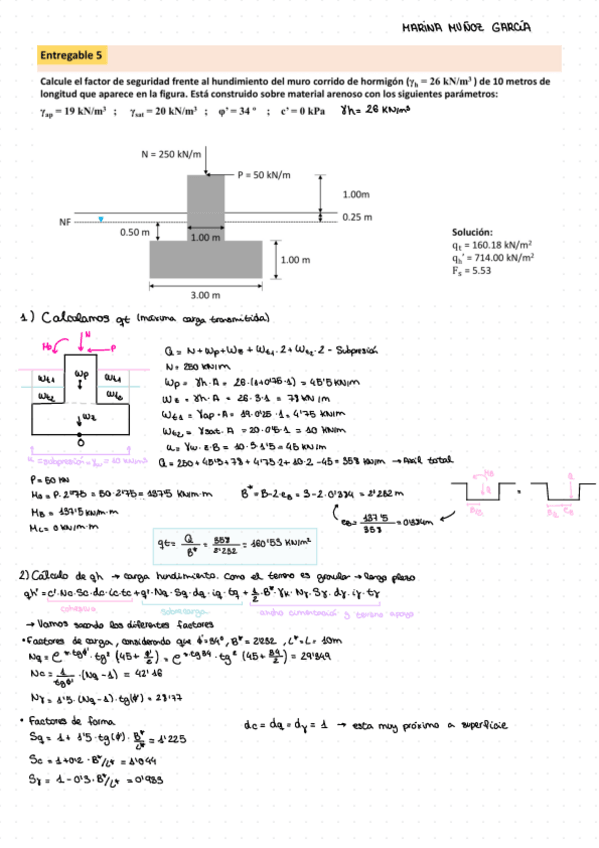 MARINA MUÑOZ GARCÍA
Entregable 5
Calcule el factor de seguridad frente al hundimiento del muro corrido de hormigón (γh = 26 kN/m³ ) de 10 metros de
longitud que aparece en la figura. Está construido sobre material arenoso con los siguientes parámetros:
γap = 19 kN/m³ ; γsat = 20 kN/m³ ; φ' = 34 º ; c' = 0 kPa γh = 26 KN/m³
N = 250 kN/m
P = 50 kN/m
1.00m
NF
0.25 m
0.50 m
1.00 m
1.00 m
3.00 m
Solución:
qt = 160.18 kN/m²
qh' = 714.00 kN/m²
Fs = 5.53
1) Calculamos qt (máxima carga transmitida)
N
Mo
P
Wt1
Wp
Wt1
Wt2
Wt2
Wz
O
Q = N + Wp + WB + Wt1·2 + Wt2·2 - Subpresión
N = 250 KN/m
Wp = γh·A = 26·(1+0'75·1) = 45'5 KN/m
WB = γh·A = 26·3·1 = 78 KN/m
Wt1 = γap·A = 19·0'25·1 = 4'75 KN/m
Wt2 = γsat·A = 20·0'5·1 = 10 KN/m
u = γw·z·B = 10·3·1'5 = 45 KN/m
Q = 250 + 45'5 + 78 + 4'75·2 + 10·2 - 45 = 358 KN/m → Axil total
P = 50 KN
Mo = P·2'75 = 50·2'75 = 137'5 KN/m·m
MB = 137'5 KN/m·m
B* = B-2·eB = 3-2·0'384 = 2'232 m
eB = 137'5/358 = 0'384m
qt = Q/B* = 358/2'232 = 160'53 KN/m²
2) Cálculo de qh → carga hundimiento. Como el terreno es granular → largo plazo
qh' = c'·Nc·Sc·dc·ic·tc + q'·Nq·Sq·dq·iq·tq + 1/2·B*·γk·Nγ·Sγ·dγ·iγ·tγ
cohesión
sobrecarga
ancho cimentación y terreno apoyo
→ Vamos sacando los diferentes factores
• Factores de carga, considerando que φ'=34º, B* = 2'232, L* = L = 10m
Nq = e^(π·tgφ')·tg²(45+φ'/2) = e^(π·tg34)·tg²(45+34/2) = 29'349
Nc = 1/tgφ'·(Nq-1) = 42'16
Nγ = 1'5·(Nq-1)·tg(φ') = 28'77
• Factores de forma
dc = dq = dγ = 1 → esta muy próximo a superficie
Sq = 1 + 1'5·tg(φ')·B*/L* = 1'225
Sc = 1+0'2·B*/L* = 1'044
Sγ = 1-0'3·B*/L* = 0'933